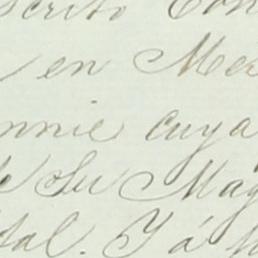 scrito Con
en Me
nnie cuya
de Su Mag
tal. Yá